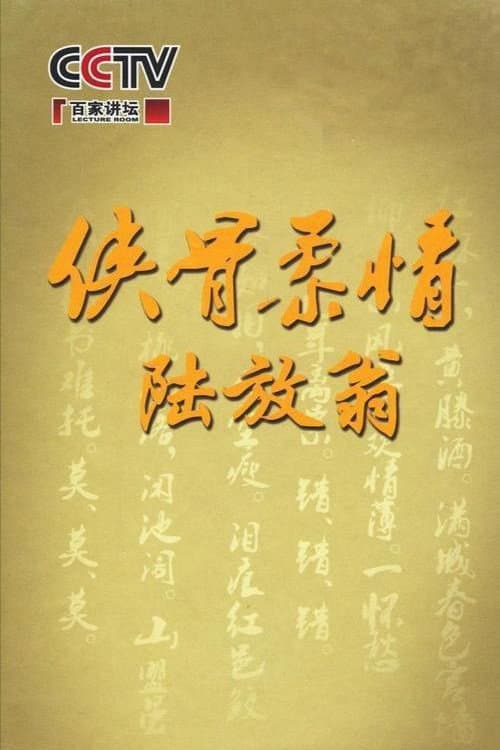 CCTV
百家讲坛
LECTURE ROOM
侠骨柔情
陆放翁
手,黄滕酒。满城春色宫墙
柳 风 欢情薄。一怀愁
年离索。错、错、错。
空瘦。泪痕红邑鲛
落,闲池阁。山盟虽
书难托。莫、莫、莫。